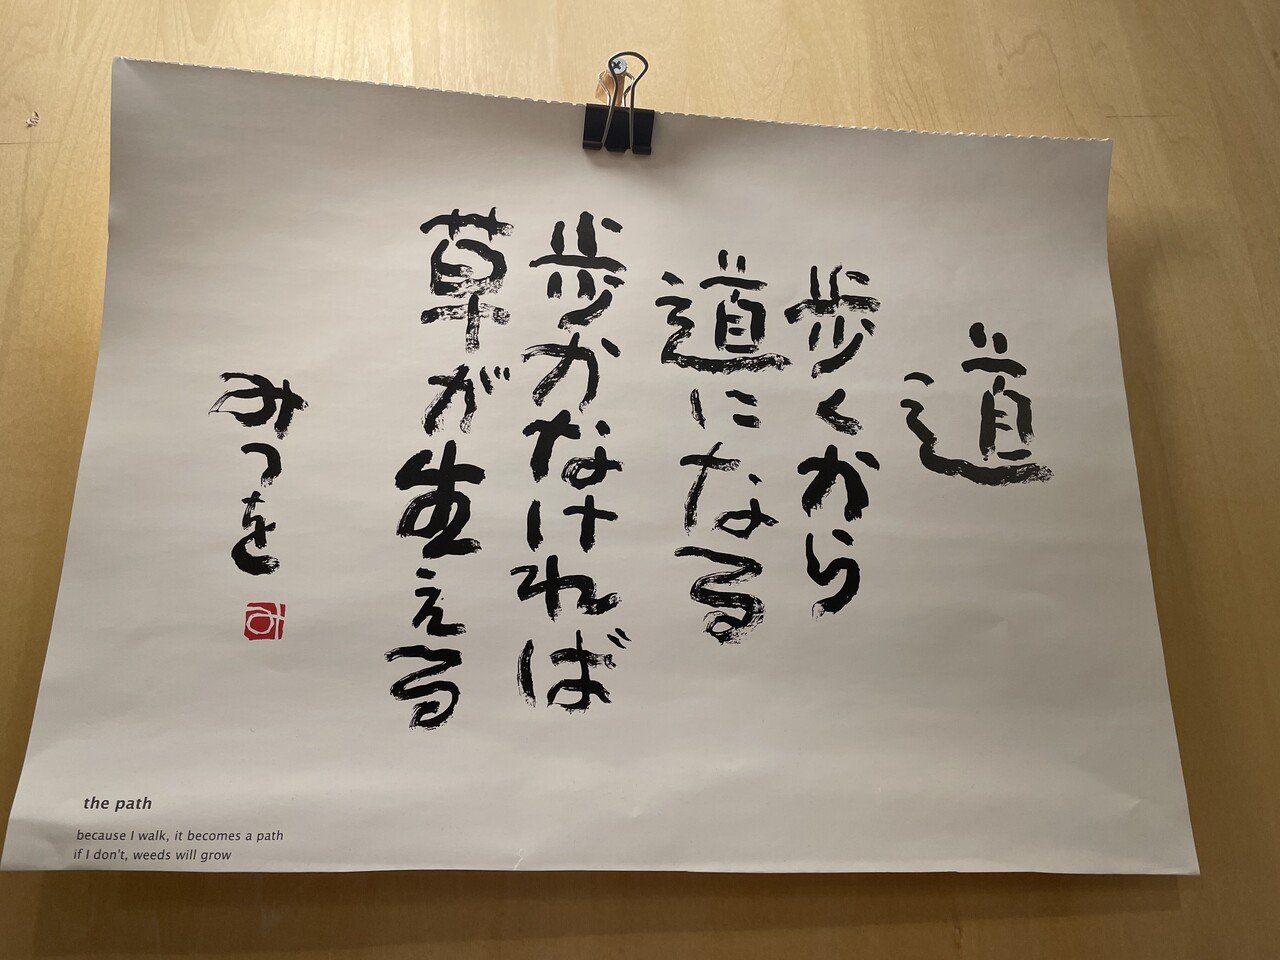 道
歩くから
道になる
歩かなければ
草が生える
みつを
み
the path
because I walk, it becomes a path
if I don't, weeds will grow